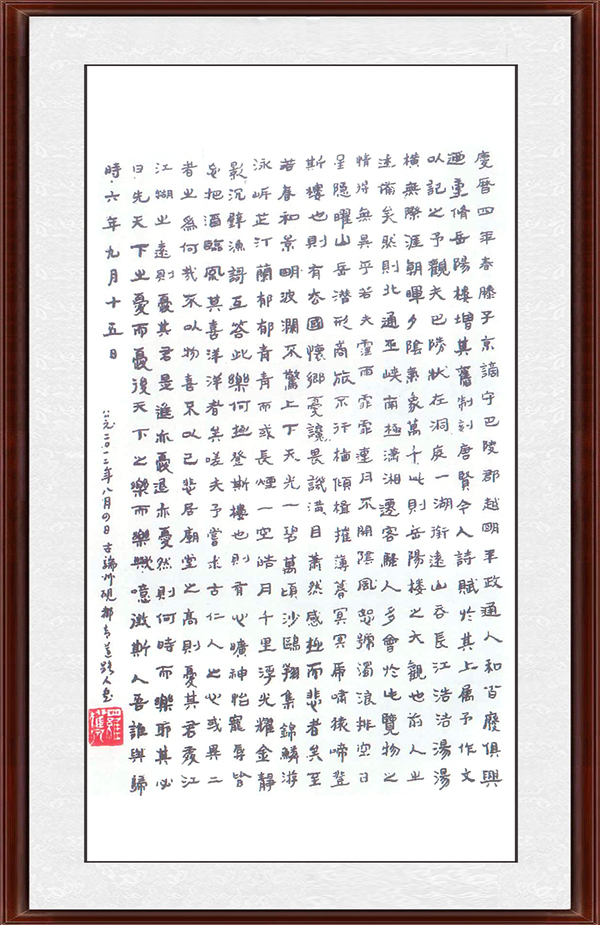 慶曆四年春滕子京謫守巴陵郡越明年政通人和百廢俱興
迺重脩岳陽樓增其舊制刻唐賢今人詩賦於其上屬予作文
以記之予觀夫巴陵狀在洞庭一湖銜遠山吞長江浩浩湯湯
橫無際涯朝暉夕陰氣象萬千此則岳陽樓之大觀也前人之
述備矣然則北通巫峽南極瀟湘遷客騷人多會於此覽物之
情得無異乎若夫霪雨霏霏連月不開陰風怒號濁浪排空日
星隱曜山岳潛形商旅不行檣傾楫摧薄暮冥冥虎嘯猿啼登
斯樓也則有去國懷鄉憂讒畏譏滿目蕭然感極而悲者矣至
若春和景明波瀾不驚上下天光一碧萬頃沙鷗翔集錦鱗游
泳岸芷汀蘭郁郁青青而或長煙一空皓月千里浮光耀金靜
影沉璧漁謌互答此樂何極登斯樓也則有心曠神怡寵辱皆
忘把酒臨風其喜洋洋者矣嗟夫予嘗求古仁人之心或異二
者之為何哉不以物喜不以己悲居廟堂之高則憂其君處江
江湖之遠則憂其君是進亦憂退亦憂然則何時而樂耶其必
曰先天下之憂而憂後天下之樂而樂歟噫微斯人吾誰與歸
時六年九月十五日
公元二〇一二年八月四日古端州硯都路人書